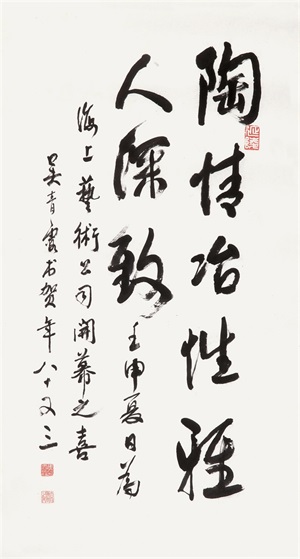 陶情冶性雅
人深致壬申夏日為
海上藝術公司開幕之喜
吳青霞書賀年八十又三